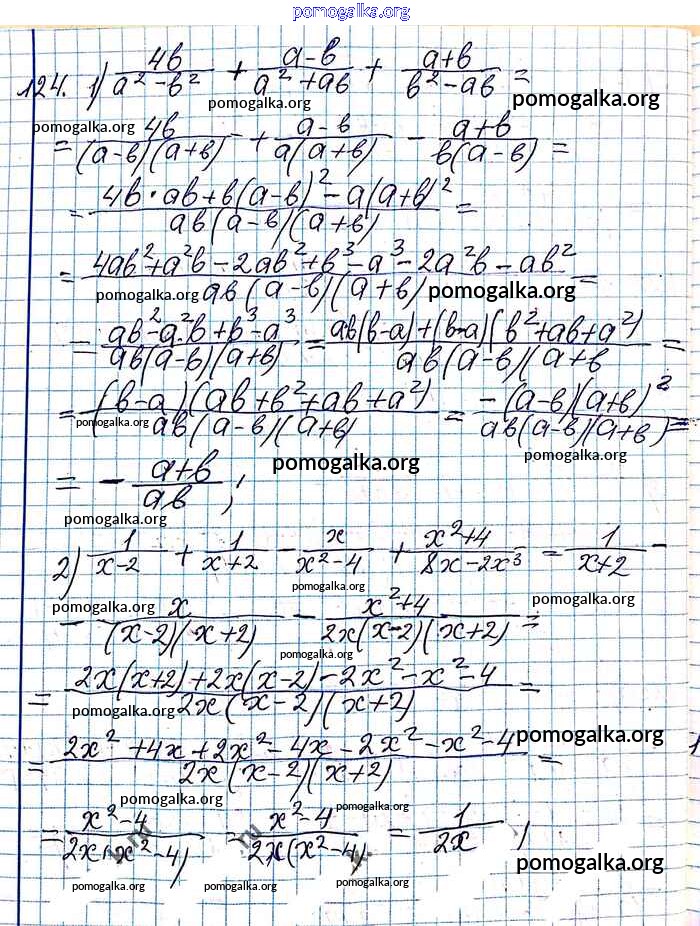 pomogalka.org
124. 1) 4b/(a² - b²) + (a-b)/(a² + ab) + (a+b)/(b² - ab) =
pomogalka.org pomogalka.org
pomogalka.org
= 4b/((a-b)(a+b)) + (a-b)/(a(a+b)) - (a+b)/(b(a-b)) =
= (4b·ab + b(a-b)² - a(a+b)²)/(ab(a-b)(a+b)) =
= (4ab² + a²b - 2ab² + b³ - a³ - 2a²b - ab²)/(ab(a-b)(a+b)) =
pomogalka.org pomogalka.org
= (ab² - a²b + b³ - a³)/(ab(a-b)(a+b)) = (ab(b-a) + (b-a)(b² + ab + a²))/(ab(a-b)(a+b =
= ((b-a)(ab + b² + ab + a²))/(ab(a-b)(a+b)) = (-(a-b)(a+b)²)/(ab(a-b)(a+b)) =
pomogalka.org pomogalka.org
= - (a+b)/(ab);
pomogalka.org
pomogalka.org
2) 1/(x-2) + 1/(x+2) - x/(x²-4) + (x²+4)/(8x-2x³) = 1/(x+2) -
pomogalka.org pomogalka.org pomogalka.org
- x/((x-2)(x+2)) - (x²+4)/(2x(x-2)(x+2)) =
pomogalka.org
= (2x(x+2) + 2x(x-2) - 2x² - x² - 4)/(2x(x-2)(x+2)) =
pomogalka.org
pomogalka.org
= (2x² + 4x + 2x² - 4x - 2x² - x² - 4)/(2x(x-2)(x+2)) =
pomogalka.org pomogalka.org
= (x²-4)/(2x(x²-4)) = (x²-4)/(2x(x²-4)) = 1/(2x);
pomogalka.org
pomogalka.org pomogalka.org pomogalka.org